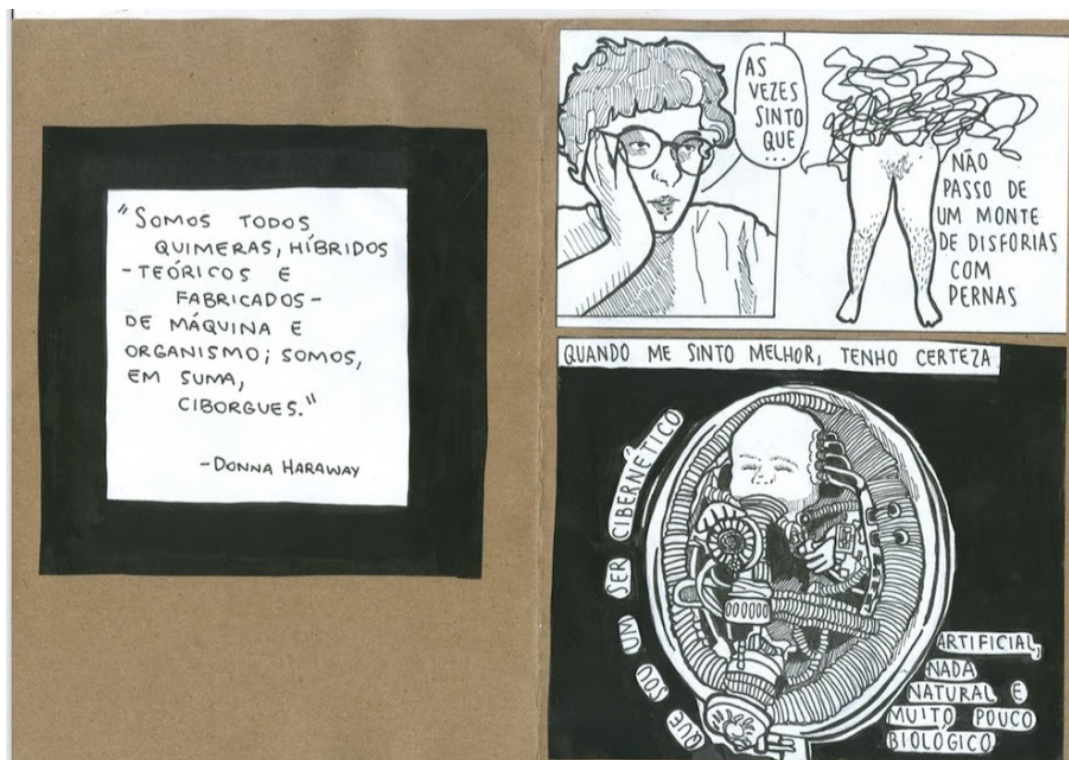 "SOMOS TODOS
QUIMERAS, HÍBRIDOS
-TEÓRICOS E
FABRICADOS-
DE MÁQUINA E
ORGANISMO; SOMOS,
EM SUMA,
CIBORGUES."
-DONNA HARAWAY
AS
VEZES
SINTO
QUE
...
NÃO
PASSO DE
UM MONTE
DE DISFORIAS
COM
PERNAS
QUANDO ME SINTO MELHOR, TENHO CERTEZA
QUE SOU UM SER CIBERNÉTICO
ARTIFICIAL,
NADA
NATURAL E
MUITO POUCO
BIOLÓGICO